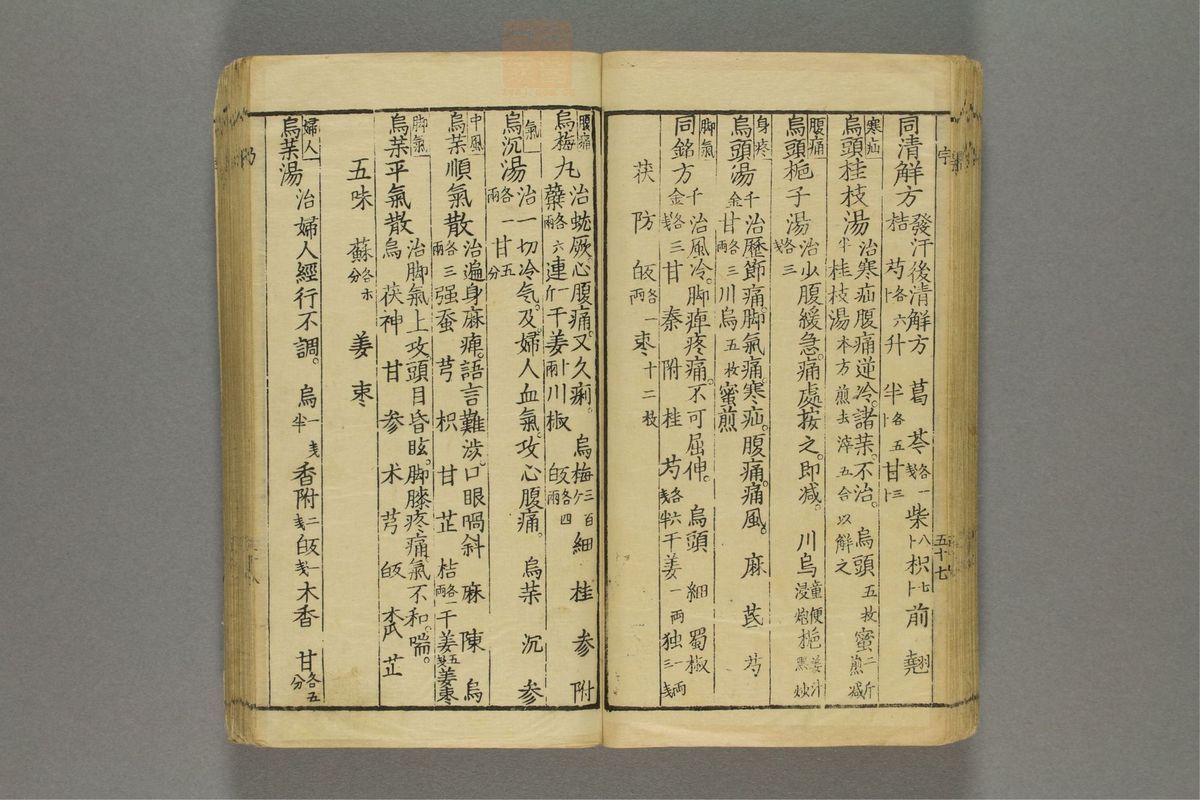 同清解方 發汗後清解方 葛 芩 各一戔 柴 八卜 枳 七卜 前 翹
桔 芍 各六卜 升 半卜 各五卜 甘 三卜
寒疝 烏頭桂枝湯 治寒疝腹痛逆冷。諸藥。不治。 烏頭 五枚 蜜 二斤 煎減
半 桂枝湯 本方 煎去滓五合以解之
腹痛 烏頭梔子湯 治少腹緩急。痛處按之。即減。 川烏 童便浸炮 梔 姜汁黑炒
各三戔
身疼 烏頭湯 千金 治歷節痛。脚氣痛。寒疝。腹痛。痛風。 麻 芪 芍
甘 各三兩 川烏 五枚 蜜煎
脚氣 同銘方 千金 治風冷。脚痺疼痛。不可屈伸。 烏頭 細 蜀椒
各三戔 甘 秦 附 桂 芍 各六戔半 干姜 一兩 独 一兩三戔
茯 防 皈 各一兩 枣 十二枚
五十七
腹痛 烏梅丸 治蚘厥。心腹痛。又久痢。 烏梅 三百ケ 細 桂 参 附
蘗 各六兩 連 一斤 干姜 十兩 川椒 皈 各四兩
氣 烏沉湯 治一切冷気。及。婦人血氣。攻心腹痛。 烏藥 沉 参
各一兩 甘 五分
中風 烏藥順氣散 治遍身麻痺。語言難澁。口眼喎斜 麻 陳 烏
各三兩 强蚕 芎 枳 甘 芷 桔 各一兩 干姜 五戔 姜枣
脚氣 烏藥平氣散 治脚氣上攻。頭目昏眩。脚膝疼痛。氣不和。喘。
烏 茯神 甘 参 术 芎 皈 木瓜 芷
五味 蘇 各朩分 姜 枣
婦人 烏藥湯 治婦人經行不調。 烏 一戔半 香附 二戔 皈 一戔 木香 甘 各五分